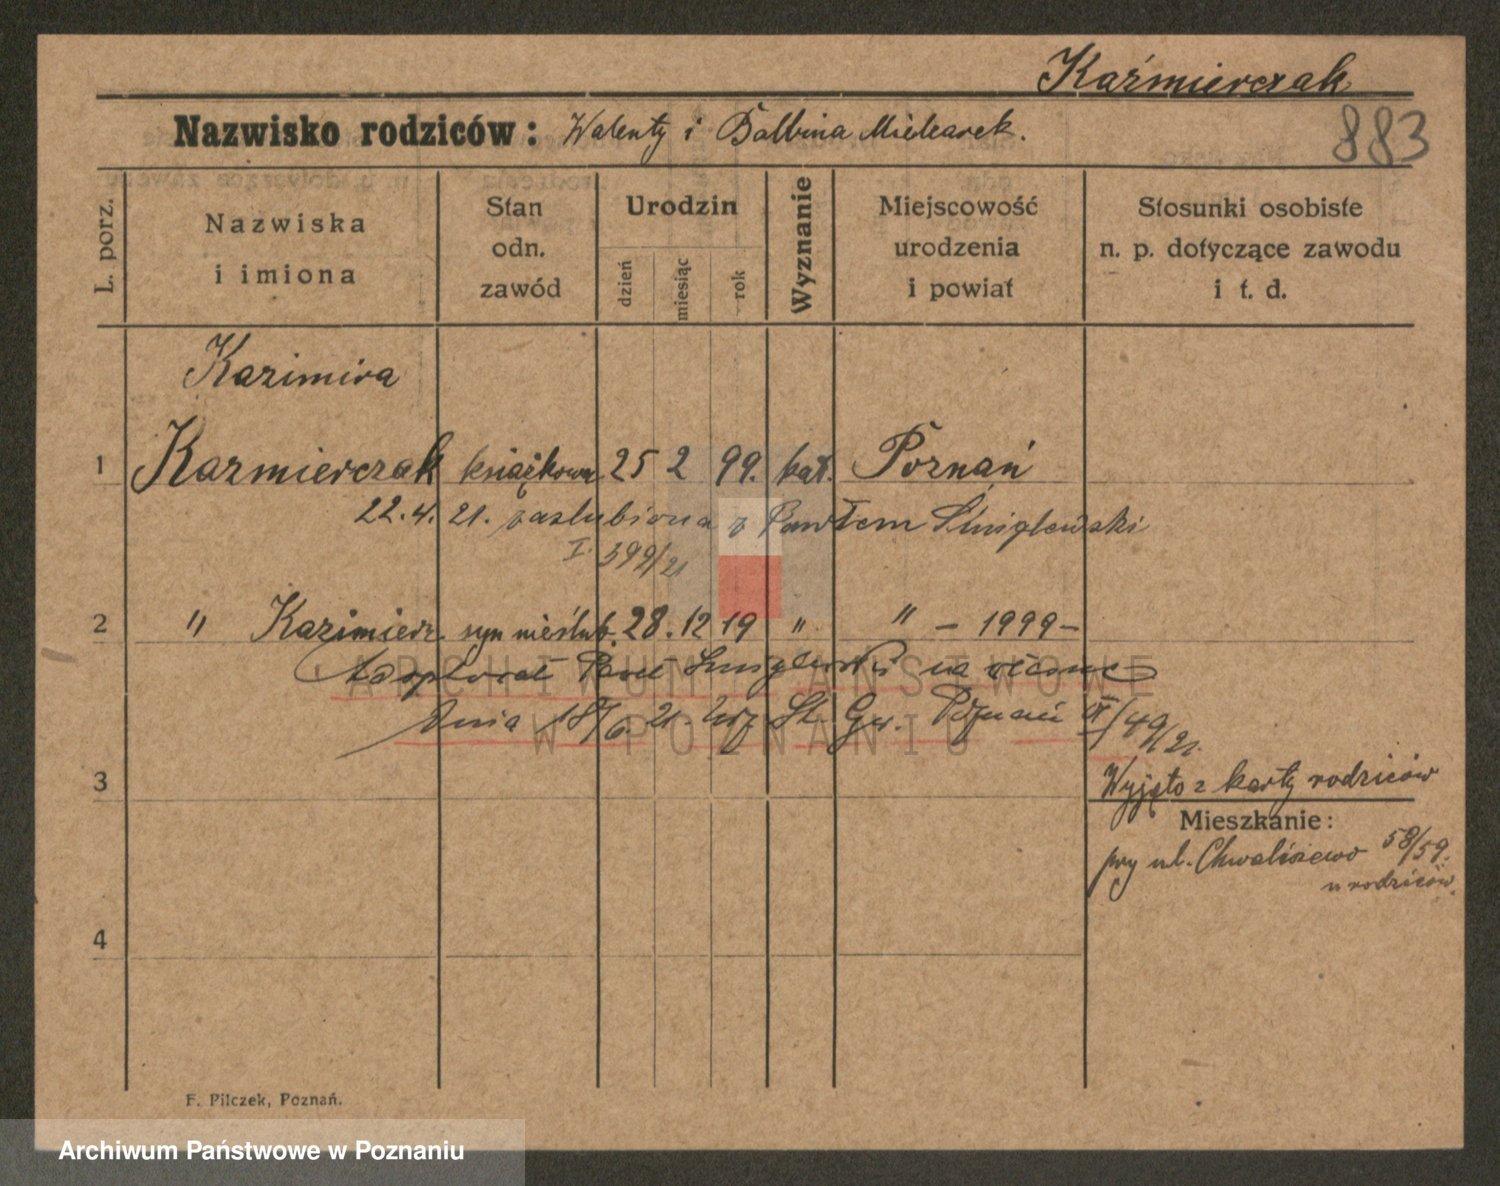 Kaźmierczak
Nazwisko rodziców: Walenty i Balbina Mielcarek.
883
L. porz.
Nazwiska
i imiona
Stan
odn.
zawód
Urodzin
dzień
miesiąc
rok
Wyznanie
Miejscowość
urodzenia
i powiat
Stosunki osobiste
n. p. dotyczące zawodu
i t. d.
Kazimira
1 Kazmierczak książkowa 25 2 99. kat. Poznań
22.4. 21. zaślubiona z Pawłem Śmiglewski
I. 399/21
2 " Kazimierz. syn nieślub. 28. 12 19 " " - 1999 -
Adoptował Paweł Śmiglewski na mocy
dnia 18/6. 21. Urz St. Gr. Poznań IX/49/21.
3
Wyjęto z karty rodziców
Mieszkanie:
przy ul. Chwaliszewo 58/59.
u rodziców.
4
F. Pilczek, Poznań.
ARCHIWUM PAŃSTWOWE
W POZNANIU
Archiwum Państwowe w Poznaniu